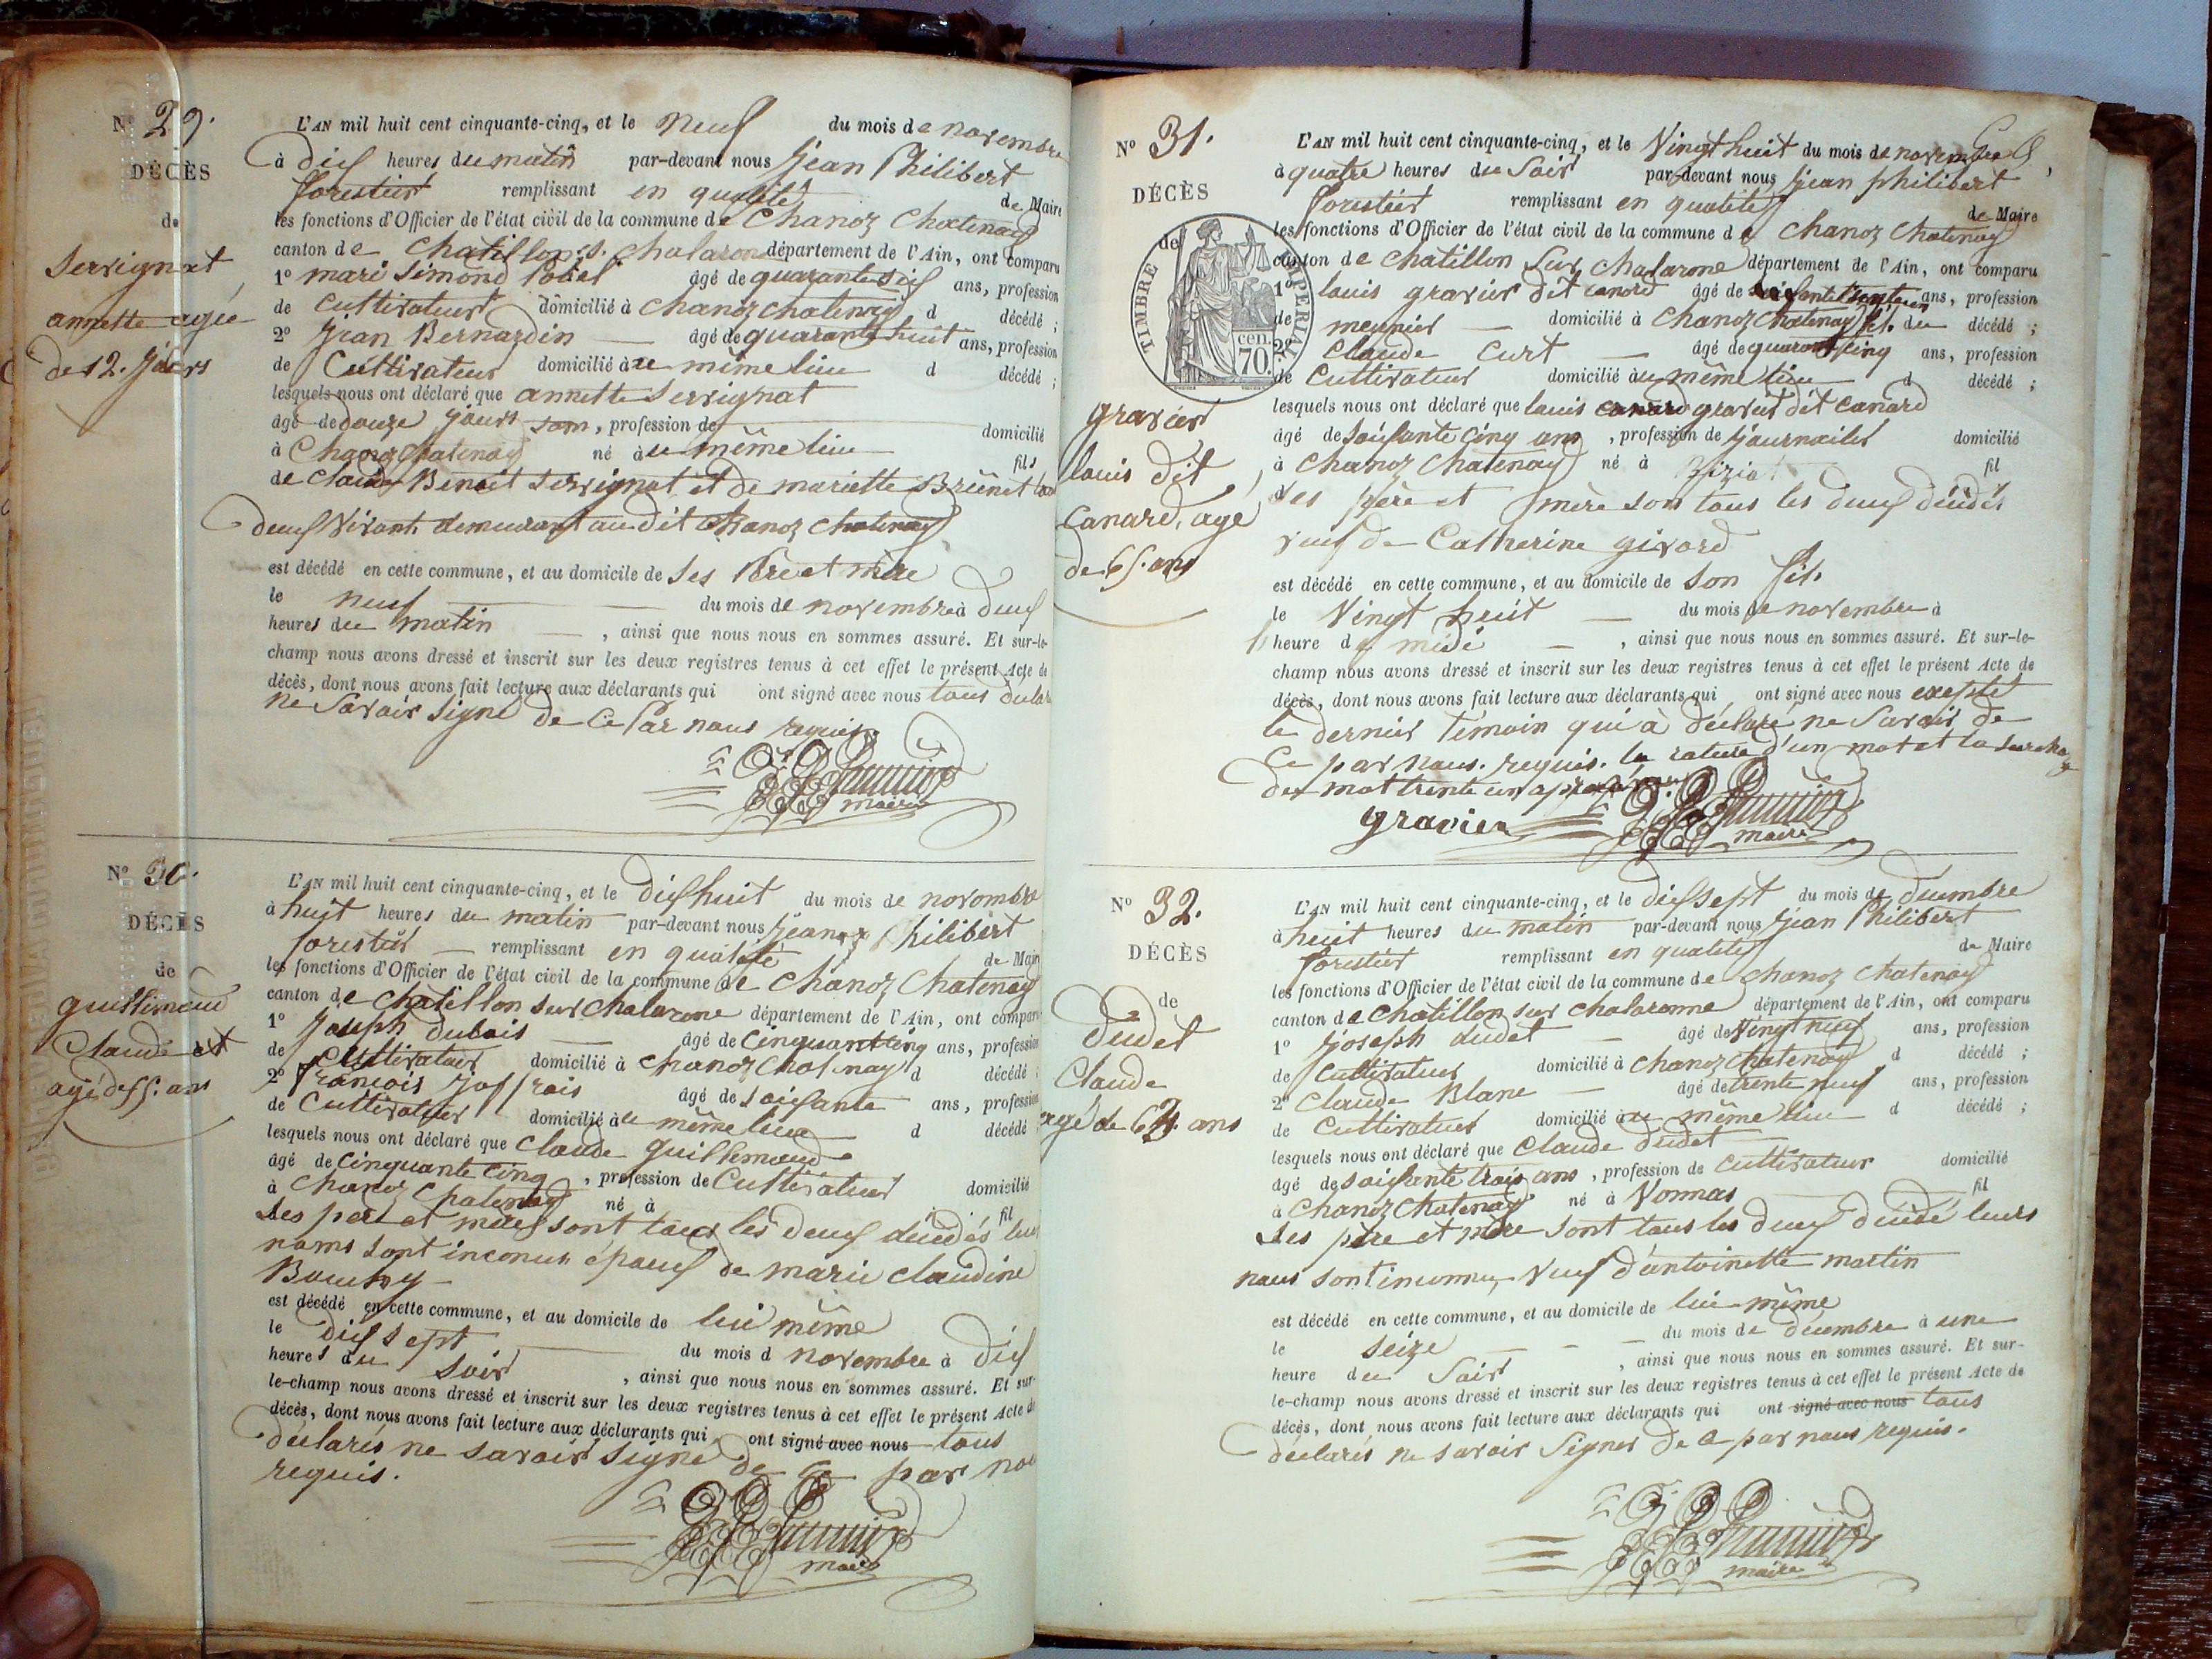 N° 29.
DÉCÈS
de
Servignat
annette agée
de 12. jours
L'AN mil huit cent cinquante-cinq, et le neuf du mois de novembre
à dix heures du matin par-devant nous jean Philibert
forestier remplissant en qualité de Maire
les fonctions d'Officier de l'état civil de la commune de Chanoz Chatenay
canton de Chatillon s. Chalaronne département de l'Ain, ont comparu
1° mari Simond âgé de quarante six ans, profession
de Cultivateur domicilié à Chanoz chatenay d décédé ;
2° Jean Bernardin âgé de quarante huit ans, profession
de Cultivateur domicilié au même lieu d décédé ;
lesquels nous ont déclaré que annette Servignat
âgé de douze jours , profession de domicilié
à Chanoz Chatenay né au même lieu fils
de Claude Benoit Servignat et de mariette Brünet tous
deux Vivants demeurant audit Chanoz Chatenay
est décédé en cette commune, et au domicile de Ses Père et mère
le neuf du mois de novembre à deux
heures du matin , ainsi que nous nous en sommes assuré. Et sur-le-
champ nous avons dressé et inscrit sur les deux registres tenus à cet effet le présent Acte de
décès, dont nous avons fait lecture aux déclarants qui ont signé avec nous tous
ne Savoir Signé de Ce Par nous requis.
maire
N° 30.
DÉCÈS
de
guillimaud
Claude
agé de 55. ans
L'AN mil huit cent cinquante-cinq, et le dix huit du mois de novembre
à huit heures du matin par-devant nous jean Philibert
forestier remplissant en qualité de Maire
les fonctions d'Officier de l'état civil de la commune de Chanoz Chatenay
canton de Chatillon sur Chalarone département de l'Ain, ont comparu
1° Joseph dubois âgé de Cinquante cinq ans, profession
de Cultivateur domicilié à Chanoz Chatenay d décédé ;
2° François joffrois âgé de soixante ans, profession
de Cultivateur domicilié au même lieu d décédé
lesquels nous ont déclaré que Claude guillemaud
âgé de Cinquante Cinq , profession de Cultivateur domicilié
à Chanoz Chatenay né à fil
des père et mère sont tous les deux décédés leurs
noms sont inconus époux de marie Claudine
est décédé en cette commune, et au domicile de lui même
le dix sept du mois d novembre à dix
heures du soir , ainsi que nous nous en sommes assuré. Et sur-
le-champ nous avons dressé et inscrit sur les deux registres tenus à cet effet le présent Acte de
décès, dont nous avons fait lecture aux déclarants qui ont signé avec nous tous
déclarés ne savoir signé de Ce par nous
requis.
maire
N° 31.
DÉCÈS
TIMBRE IMPERIAL
cen.
70.
gravier
louis dit
Canard, agé
de 65. ans
L'AN mil huit cent cinquante-cinq, et le Vingt huit du mois de novembre
à quatre heures du Soir par-devant nous jean philibert
forestier remplissant en qualité de Maire
les fonctions d'Officier de l'état civil de la commune de Chanoz Chatenay
canton de Chatillon Sur Chalarone département de l'Ain, ont comparu
1° louis gravier dit canard âgé de ans, profession
de meunier domicilié à Chanoz Chatenay fils du décédé ;
2° Claude Curt âgé de quarante cinq ans, profession
de Cultivateur domicilié au même lieu d décédé ;
lesquels nous ont déclaré que louis canard gravier dit Canard
âgé de soixante Cinq ans , profession de journalier domicilié
à Chanoz Chatenay né à Biziat fil
des père et mère son tous les deux décédés
veuf de Catherine givord
est décédé en cette commune, et au domicile de son fils
le Vingt huit du mois de novembre à
heure de midi , ainsi que nous nous en sommes assuré. Et sur-le-
champ nous avons dressé et inscrit sur les deux registres tenus à cet effet le présent Acte de
décès, dont nous avons fait lecture aux déclarants qui ont signé avec nous excepté
le dernier témoin qui à déclaré ne Savoir de
Ce par nous. requis. la rature d'un mot et la surcharge
des mot trente un
gravier
maire
N° 32.
DÉCÈS
de
dudet
Claude
agé de 63. ans
L'AN mil huit cent cinquante-cinq, et le dix Sept du mois de decembre
à huit heures du matin par-devant nous jean Philibert
forestier remplissant en qualité de Maire
les fonctions d'Officier de l'état civil de la commune de Chanoz Chatenay
canton de Chatillon sur chalaronne département de l'Ain, ont comparu
1° joseph dudet âgé de Vingt neuf ans, profession
de Cultivateur domicilié à Chanoz Chatenay d décédé ;
2° Claude Blanc âgé de trente neuf ans, profession
de Cultivateur domicilié au même lieu d décédé ;
lesquels nous ont déclaré que Claude dudet
âgé de soixante trois ans , profession de Cultivateur domicilié
à Chanoz Chatenay né à Vonnas fil
des père et mère sont tous les deux décédé leurs
noms sont inconnu, Veuf d'antoinette martin
est décédé en cette commune, et au domicile de lui même
le seize du mois de decembre à une
heure du Soir , ainsi que nous nous en sommes assuré. Et sur-
le-champ nous avons dressé et inscrit sur les deux registres tenus à cet effet le présent Acte de
décès, dont nous avons fait lecture aux déclarants qui ont signé avec nous tous
déclarés ne savoir Signer de Ce par nous requis.
maire